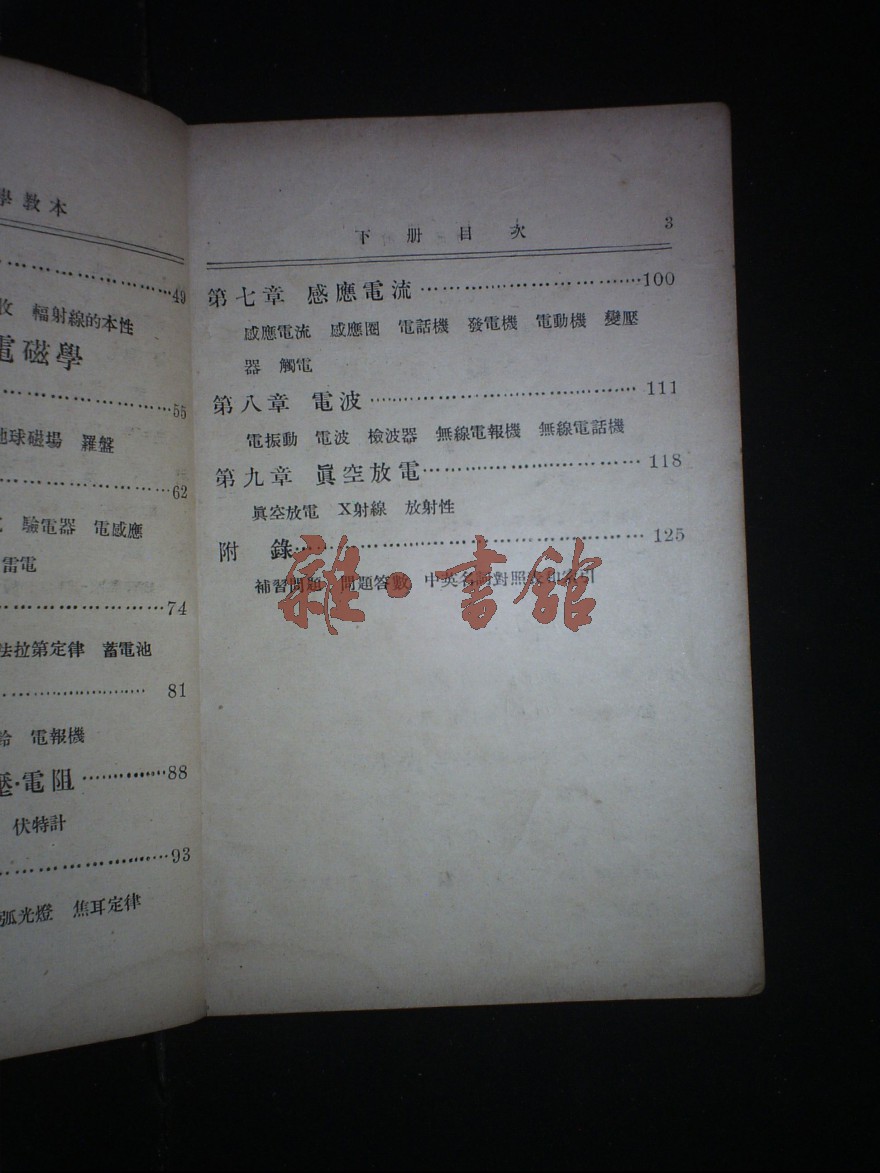 學教本
49
輻射線的本性
電磁學
55
地球磁場 羅盤
62
驗電器 電感應
雷電
74
法拉第定律 蓄電池
81
鈴 電報機
壓·電阻 88
伏特計
93
弧光燈 焦耳定律
下册目次 3
第七章 感應電流 100
感應電流 感應圈 電話機 發電機 電動機 變壓
器 觸電
第八章 電波 111
電振動 電波 檢波器 無線電報機 無線電話機
第九章 眞空放電 118
眞空放電 X射線 放射性
附 錄 125
補習問題 問題答數 中英名詞對照表和索引
雜·書館